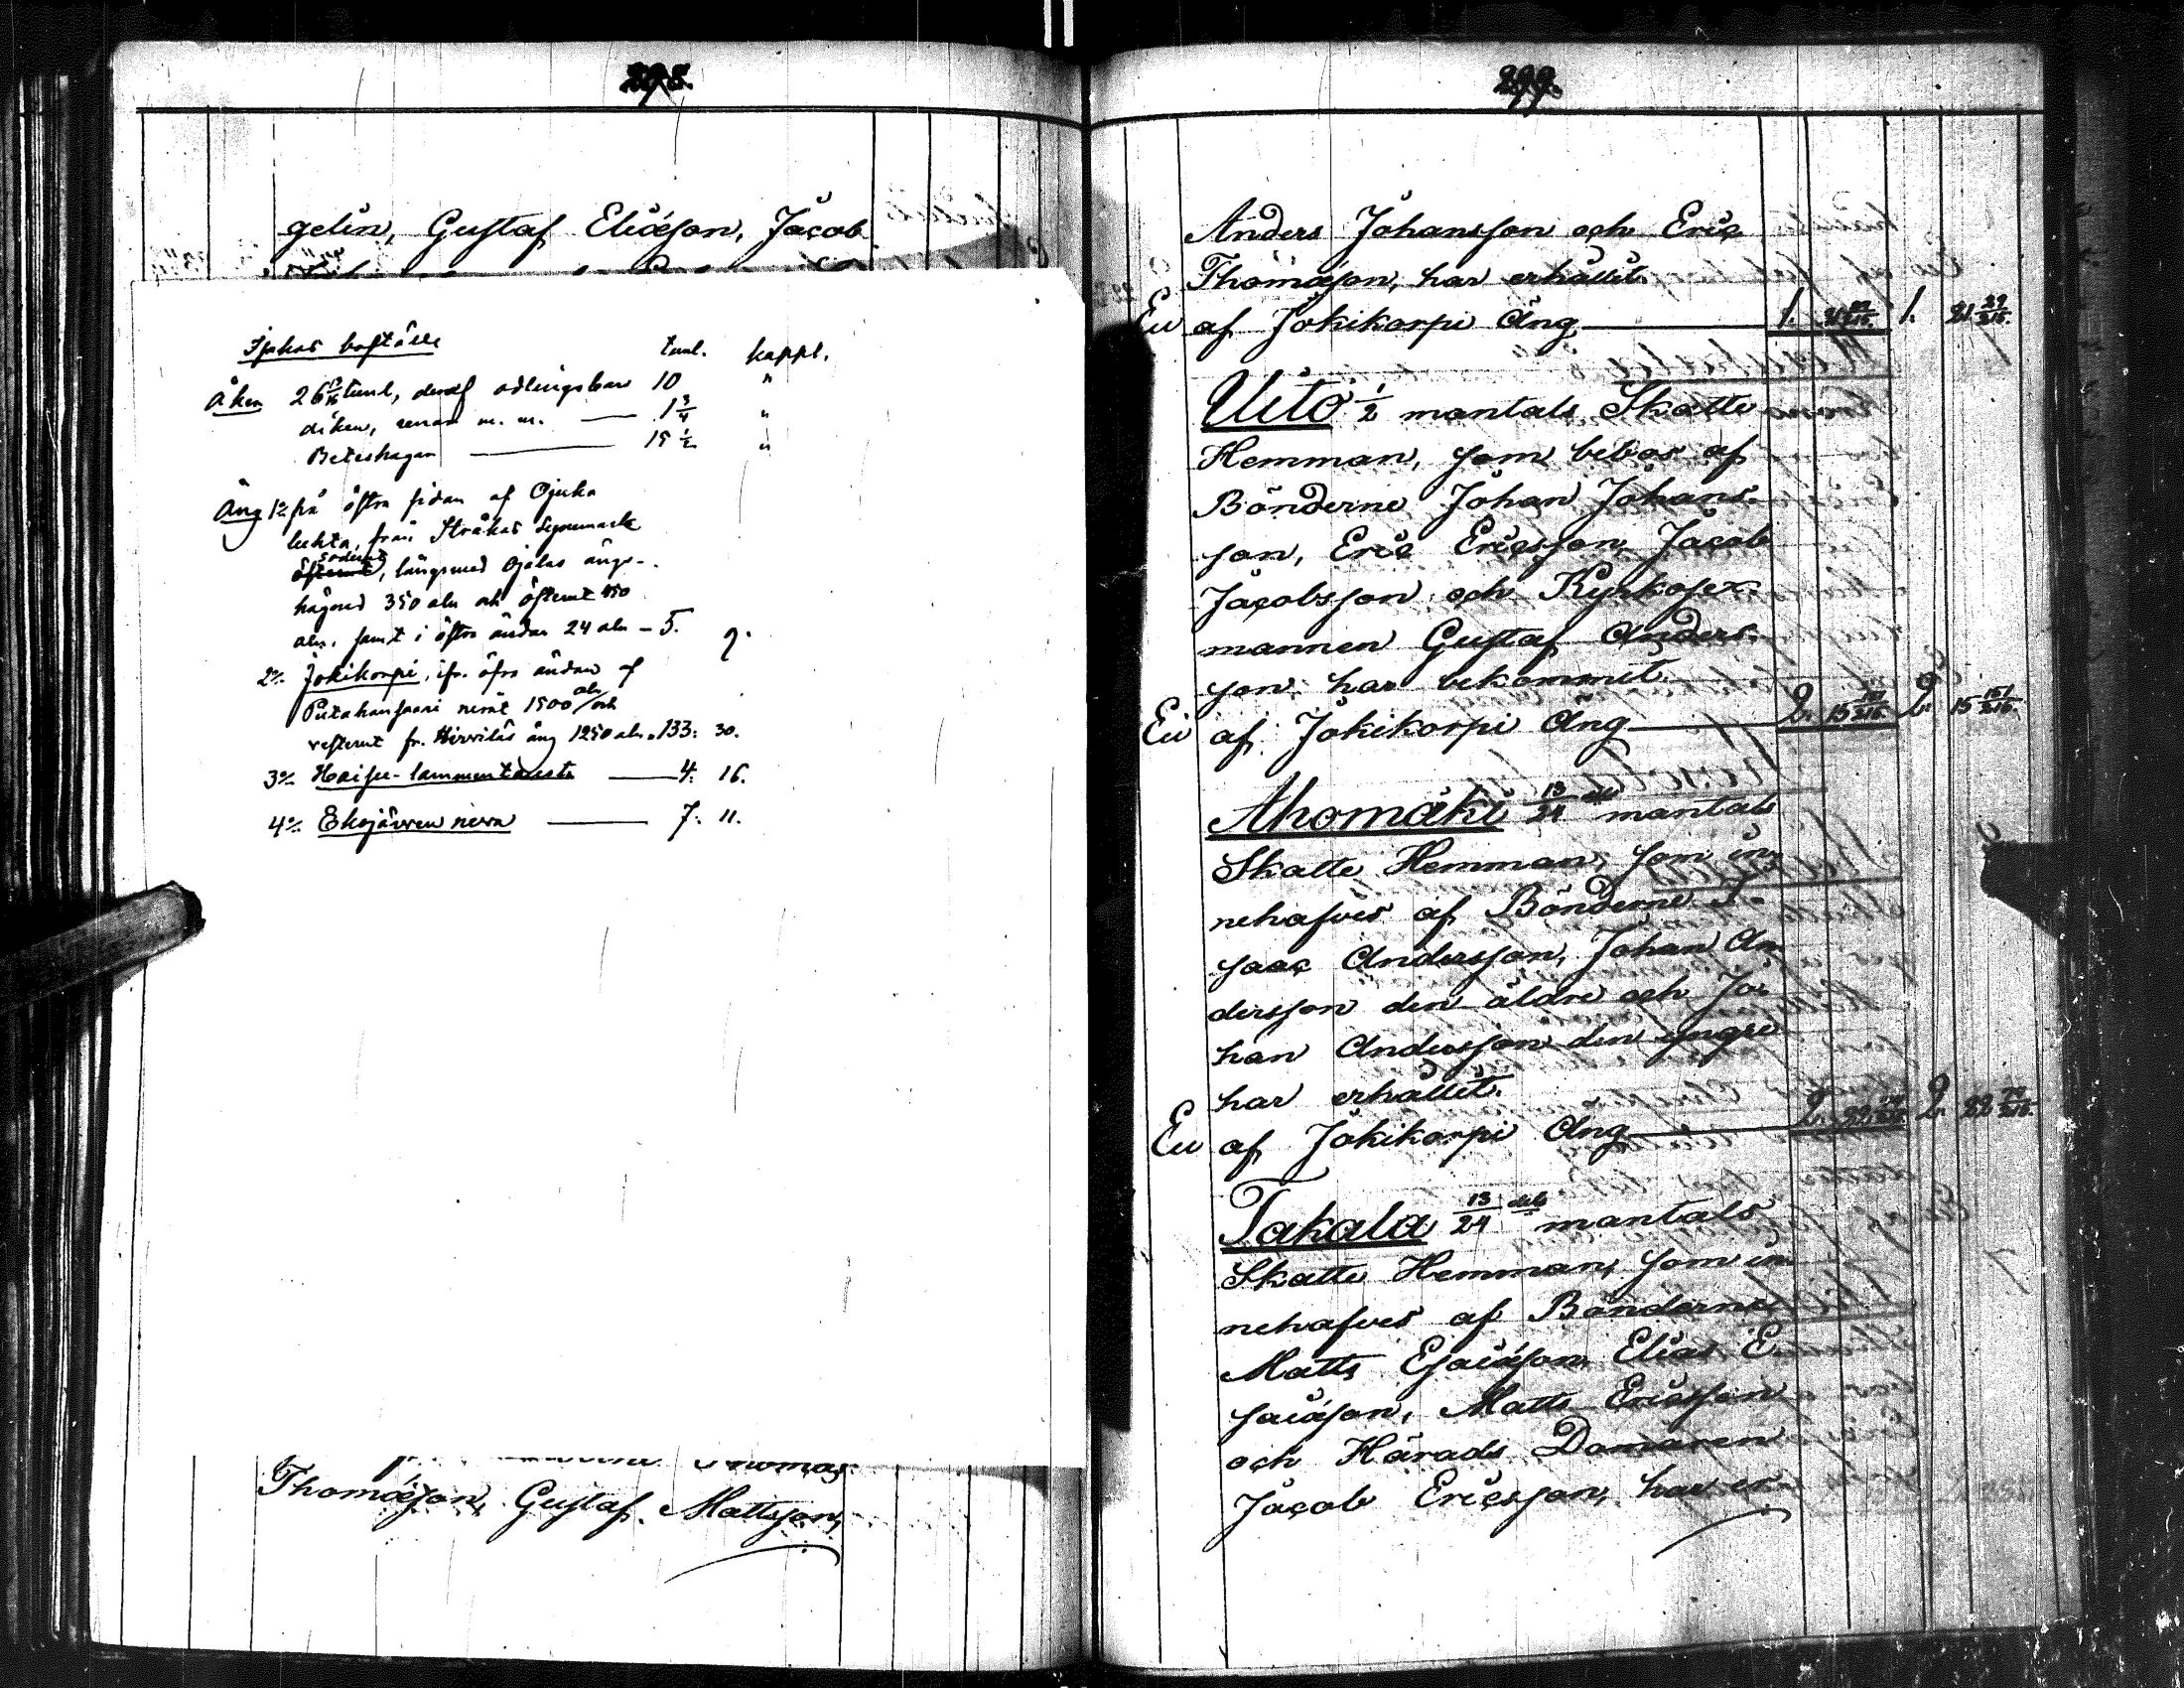 298.
gelin, Gustaf Eliæson, Jacob
Ipakas boställe
tunl. kappl.
Åker 26 tunl, deraf odlingsbar 10 "
diken, renar m. m. — 1 3/4 "
Beteshagar — 15 1/2 "
Äng 1o på östra sidan af Ojuka
luhta, från Stråkas
söderut, längsmed Ojalas ängs-
hägnad 350 aln och österut 450
aln, samt i östra ändan 24 aln - 5. 9.
2o Jokikorpi, ifr. öfra ändan af
niråt 1500 aln och
vesterut fr. Hirveläs äng 1250 aln. 133: 30.
3o Haisu-lammentausta — 4: 16.
4o Ekojärwen newa — 7: 11.
Thomas
Thomæson, Gustaf Mattsson,
299.
Anders Johansson och Eric
Thomæson, har erhållit.
Ew af Jokikorpi Äng — 1. 21 29/216. 1. 21 29/216.
Uito 1/2 mantals Skatte
Hemman, som bebos af
Bönderne Johan Johans-
son, Eric Ericsson, Jacob
Jacobsson och Kyrkosex-
mannen Gustaf Anders-
son har bekommit
Ew af Jokikorpi Äng — 2. 15 151/216. 2. 15 151/216.
Ahomäki 13/24 dels mantals
Skatte Hemman, som in-
nehafves af Bönderne I-
saac Andersson, Johan An-
dersson den äldre och Jo-
han Andersson den yngre
har erhållit.
Ew af Jokikorpi Äng — 2. 22 /216. 2. 22 /216.
Takala 13/24 dels mantals
Skatte Hemman, som in-
nehafves af Bönderne
Matts Esaiæson, Elias E-
saiæson, Matts Ericsson
och Härads Domaren
Jacob Ericsson, har er-